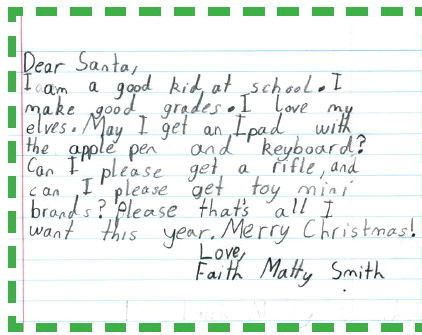 Dear Santa,
I am a good kid at school. I
make good grades. I love my
elves. May I get an Ipad with
the apple pen and keyboard?
Can I please get a rifle, and
can I please get toy mini
brands? Please that's all I
want this year. Merry Christmas!
Love,
Faith Matty Smith